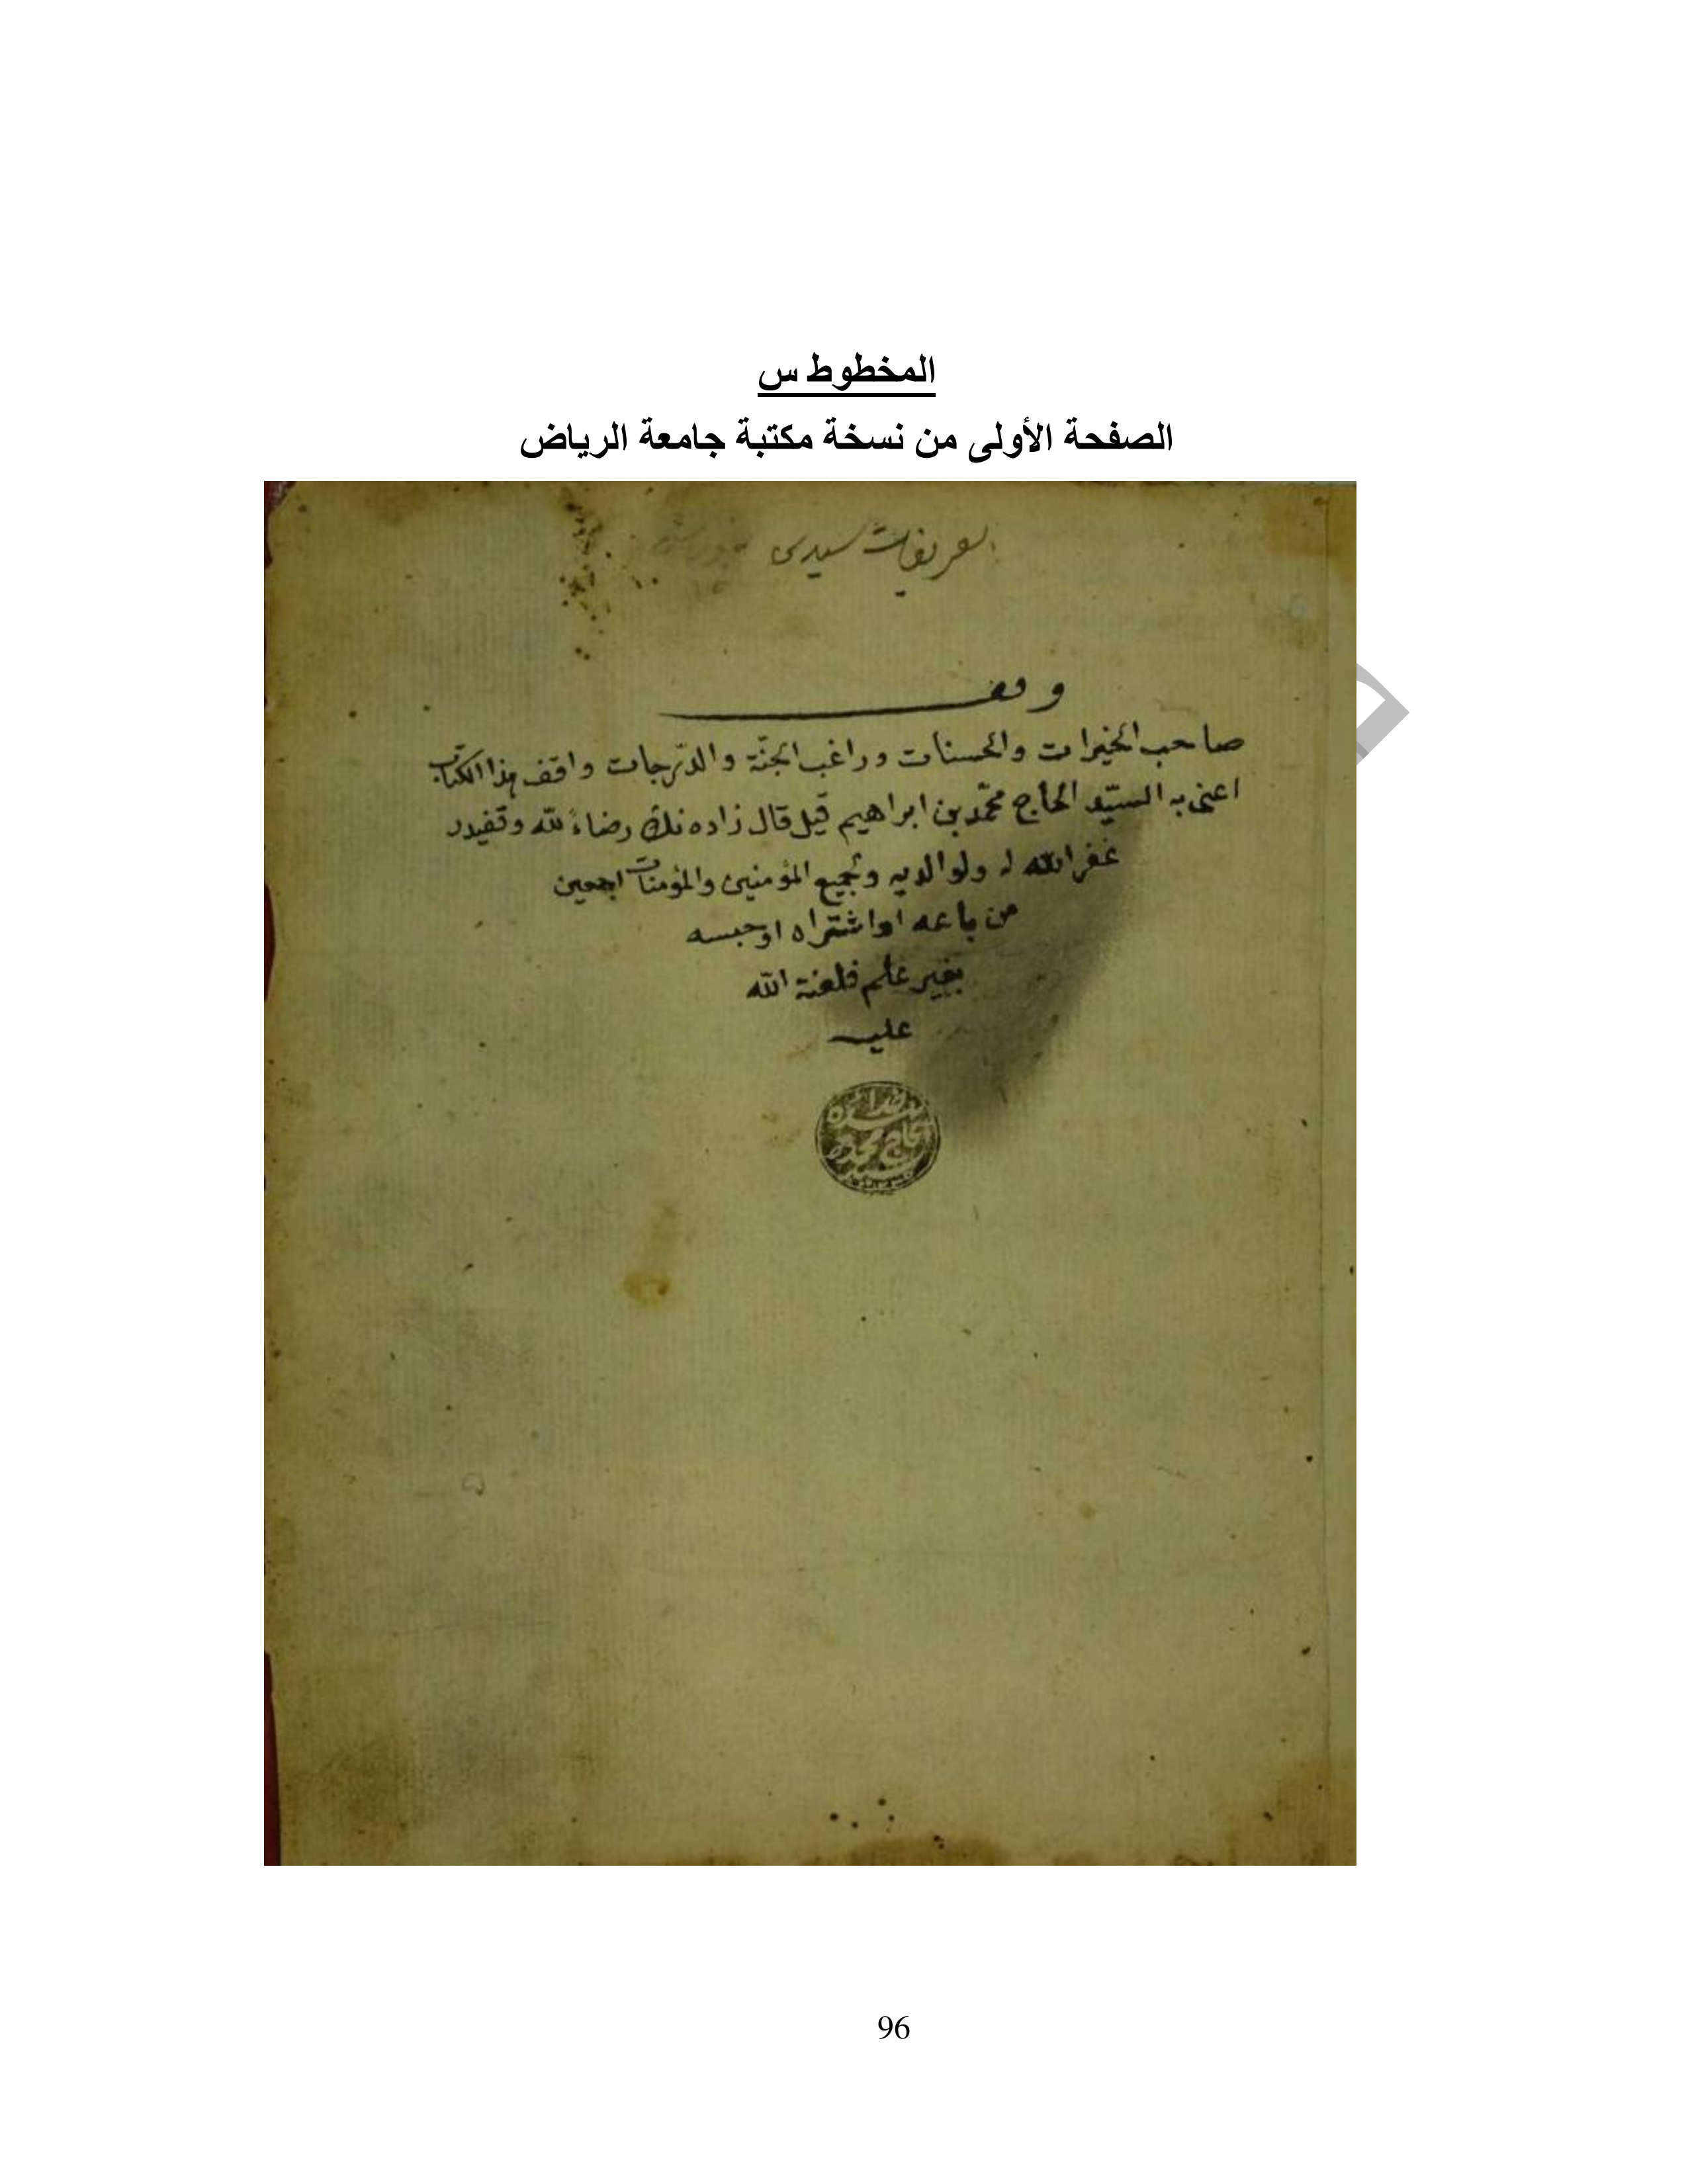 المخطوط س
الصفحة الأولى من نسخة مكتبة جامعة الرياض
تعريفات سيدى
وقف
صاحب الخيرات والحسنات وراغب الجنّة والدّرجات واقف هذا الكتاب
اعنى به السيّد الحاج محمّد بن ابراهيم قيل قال زاده نك رضاءً لله وقفيدر
غفر الله له ولوالديه ولجميع المؤمنين والمؤمنات اجمعين
من باعه او اشتراه او حبسه
بغير علم فلعنة الله
عليه
96